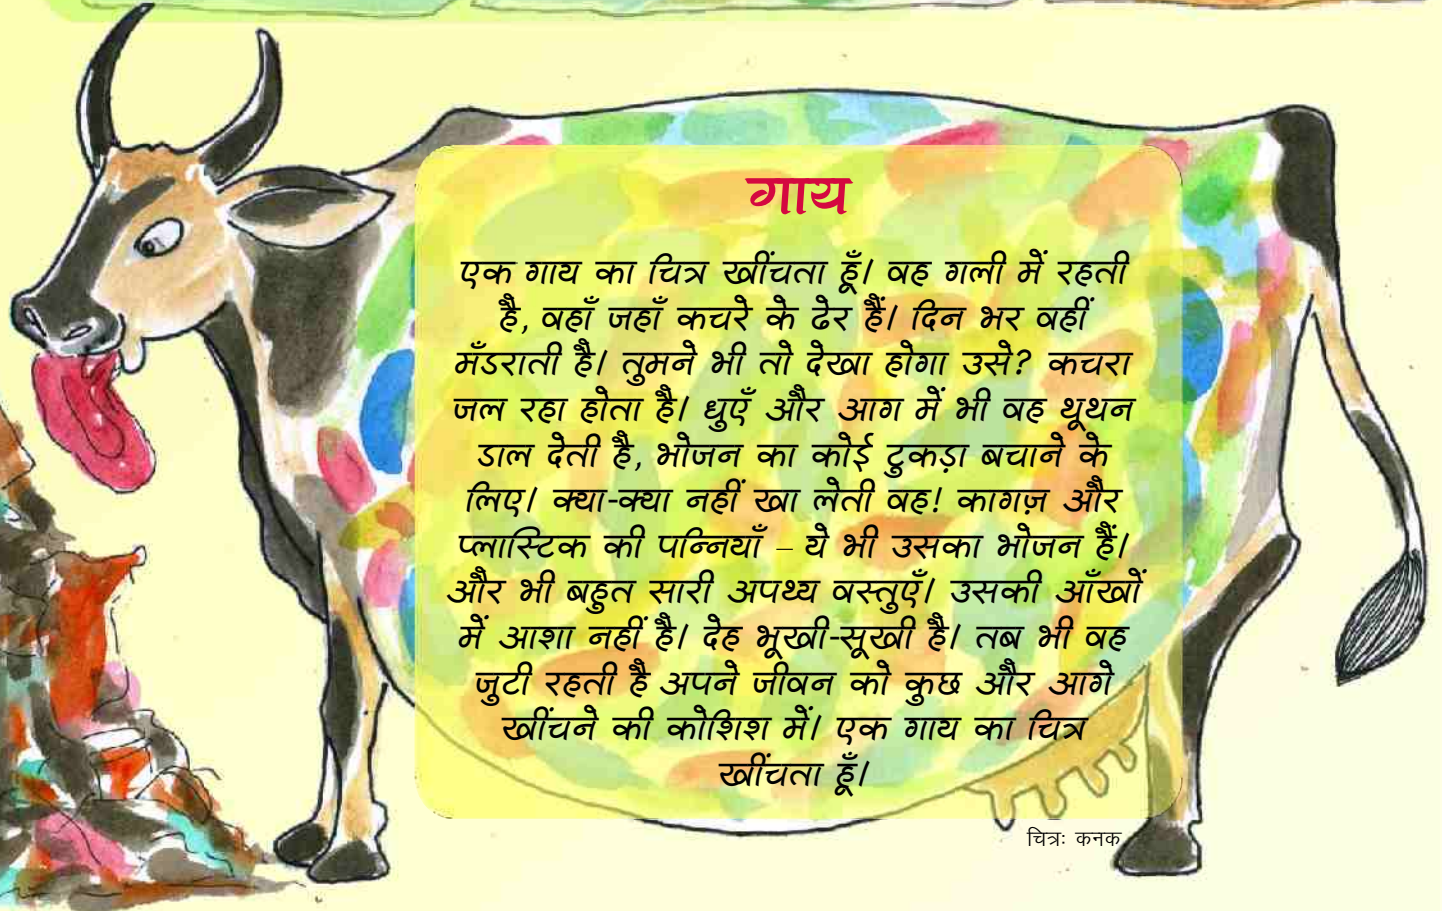 गाय
एक गाय का चित्र खींचता हूँ। वह गली में रहती
है, वहाँ जहाँ कचरे के ढेर हैं। दिन भर वहीं
मँडराती है। तुमने भी तो देखा होगा उसे? कचरा
जल रहा होता है। धुएँ और आग में भी वह थूथन
डाल देती है, भोजन का कोई टुकड़ा बचाने के
लिए। क्या-क्या नहीं खा लेती वह! कागज़ और
प्लास्टिक की पन्नियाँ – ये भी उसका भोजन हैं।
और भी बहुत सारी अपथ्य वस्तुएँ। उसकी आँखों
में आशा नहीं है। देह भूखी-सूखी है। तब भी वह
जुटी रहती है अपने जीवन को कुछ और आगे
खींचने की कोशिश में। एक गाय का चित्र
खींचता हूँ।
चित्र: कनक